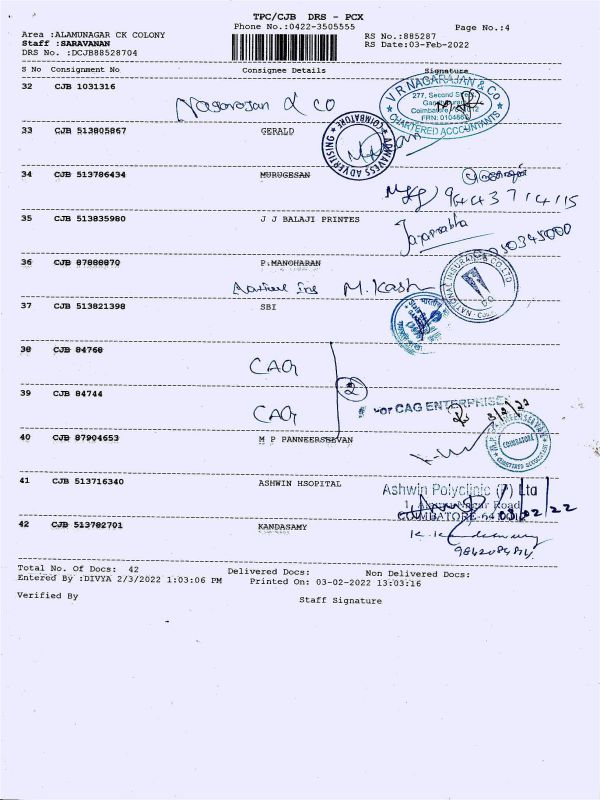 TPC/CJB DRS - PCX
Phone No.:0422-3505555
Page No.:4
Area :ALAMUNAGAR CK COLONY
Staff :SARAVANAN
DRS No. :DCJB88528704
RS No.:885287
RS Date:03-Feb-2022
S No Consignment No Consignee Details Signature
32 CJB 1031316
Nagarajan & CO
V R NAGARAJAN & CO
277, Second Street
CHARTERED ACCOUNTANTS
33 CJB 513805867 GERALD
ADWAVESS ADVERTISING
COIMBATORE
34 CJB 513786434 MURUGESAN
9443714115
35 CJB 513835980 J J BALAJI PRINTES
Jayaprabha
36 CJB 87888870 P.MANOHARAN
NATIONAL INSURANCE CO LTD
M. Kash
37 CJB 513821398 SBI
38 CJB 84768
CAG
39 CJB 84744
CAG
2
For CAG ENTERPRISES
3/2/22
40 CJB 87904653 M P PANNEERSSEVAN
COIMBATORE
CHARTERED ACCOUNTANT
41 CJB 513716340 ASHWIN HSOPITAL
Ashwin Polyclinic (P) Ltd
COIMBATORE
03/02/22
42 CJB 513782701 KANDASAMY
Total No. Of Docs: 42 Delivered Docs: Non Delivered Docs:
Entered By :DIVYA 2/3/2022 1:03:06 PM Printed On: 03-02-2022 13:03:16
Verified By
Staff Signature